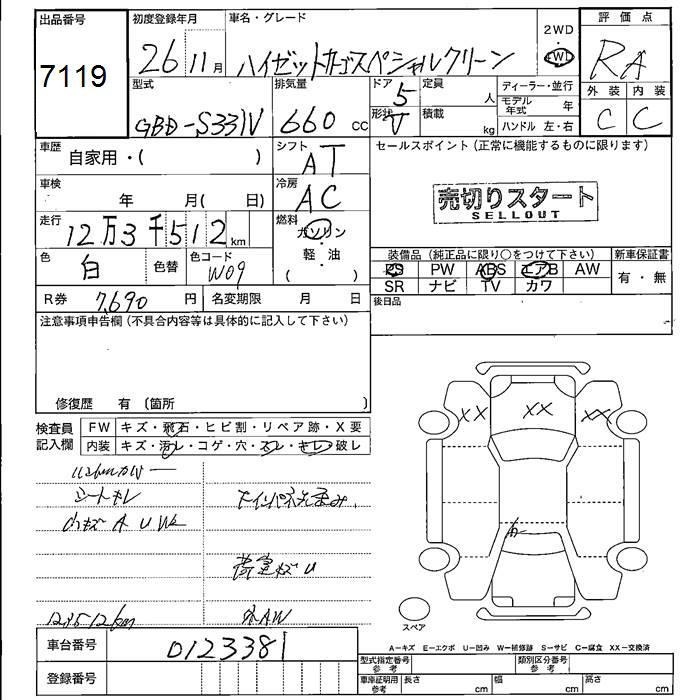 出品番号 初度登録年月 車名・グレード 評価点
7119 26 11月 ハイゼットカーゴスペシャルクリーン 2WD 4WD RA
型式 排気量 ドア 定員 ディーラー・並行 外装 内装
GBD-S331V 660 cc 5 人 モデル年式 年 C C
形状 V 積載 kg ハンドル 左・右
車歴 自家用・( ) シフト AT セールスポイント (正常に機能するものに限ります)
車検 年 月( 日) 冷房 AC
売切りスタート
SELLOUT
走行 12万3千512km 燃料 ガソリン・軽・油 ( )
色 白 色替 色コード W09
装備品 (純正品に限り〇をつけて下さい) 新車保証書
PS PW ABS エアB AW 有・無
SR ナビ TV カワ
R券 7,690円 名変期限 月 日 後日品
注意事項申告欄 (不具合内容等は具体的に記入して下さい)
修復歴 有 (箇所
検査員記入欄 FW キズ・飛石・ヒビ割・リペア跡・X要
内装 キズ・汚レ・コゲ・穴・スレ・キレ・破レ
XX XX XX
シートキレ
小キズ A U W2
A
U
123512km 外AW
スペア
車台番号 0123381
A−キズ E−エクボ U−凹み W−補修跡 S−サビ C−腐食 XX−交換済
登録番号
型式指定番号 参考 類別区分番号 参考
車庫証明用 参考 長さ cm 幅 cm 高さ cm